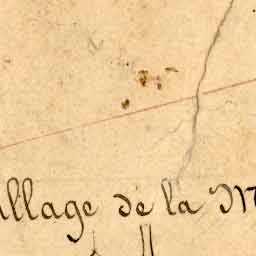 illage de la M